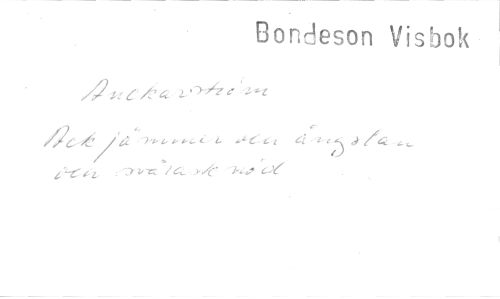 Bondeson Visbok
Anckarström
Ack jämmer och ångstan
och svårask nöd